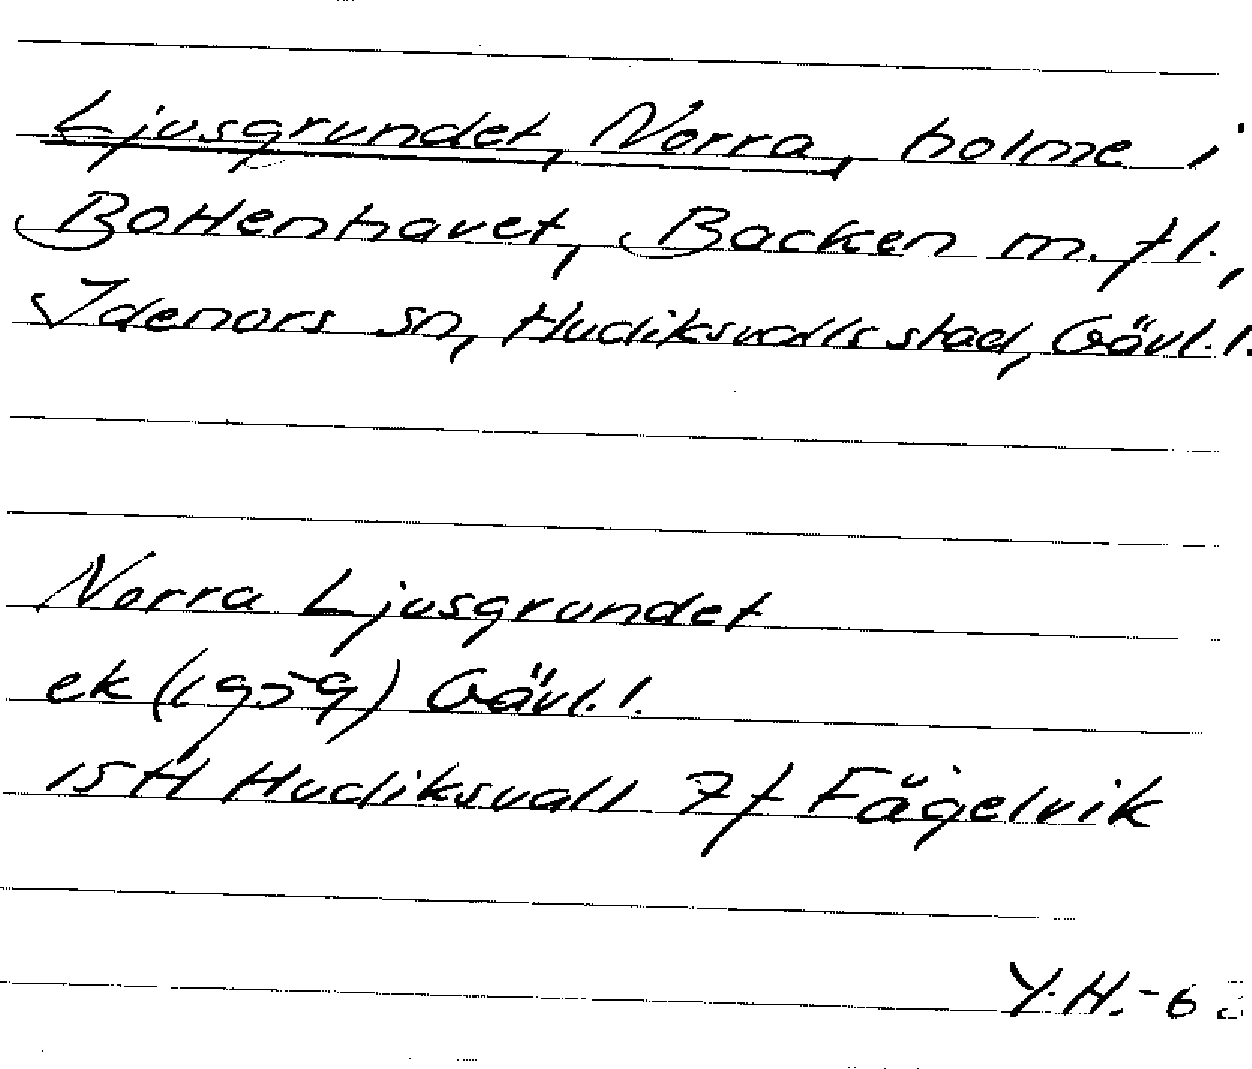 Ljusgrundet, Norra, holme i
Bottenhavet, Backen m. fl.,
Idenors sn, Hudiksvalls stad, Gävl. l.
Norra Ljusgrundet
ek (1959) Gävl. l.
15H Hudiksvall 7f Fågelvik
Y.H.-6